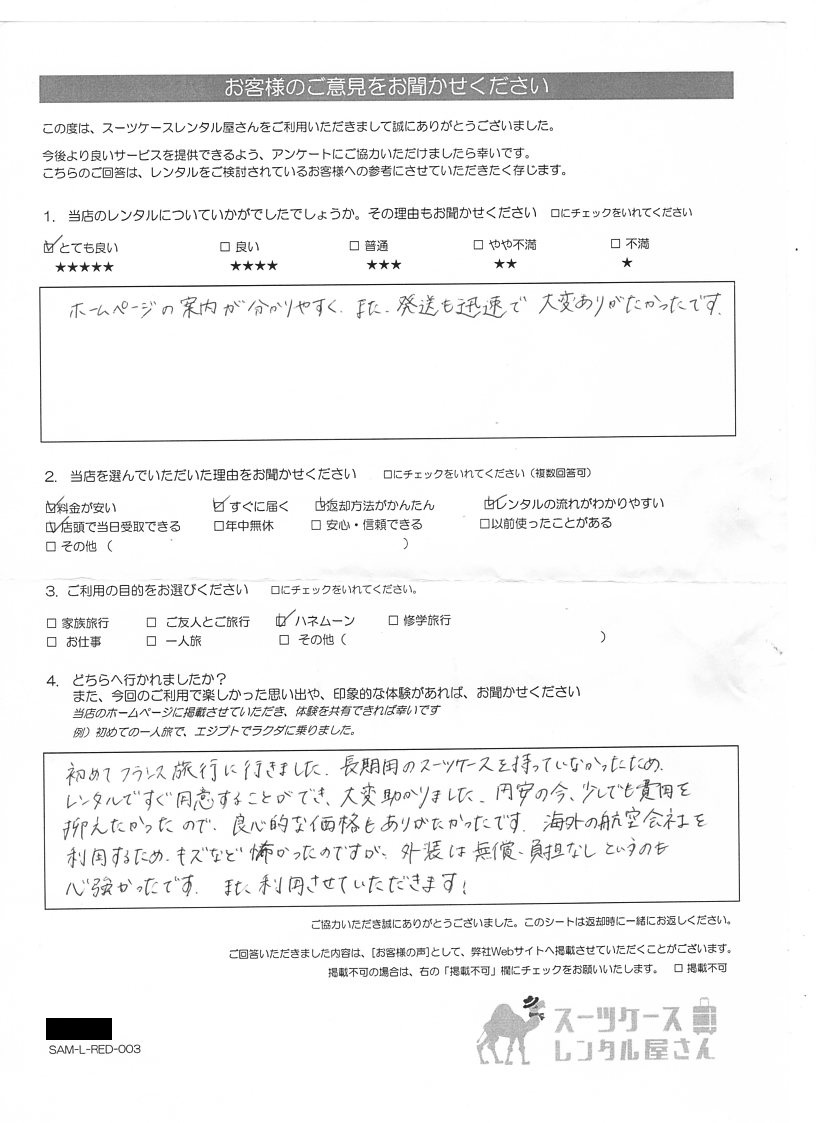 お客様のご意見をお聞かせください
この度は、スーツケースレンタル屋さんをご利用いただきまして誠にありがとうございました。
今後より良いサービスを提供できるよう、アンケートにご協力いただけましたら幸いです。
こちらのご回答は、レンタルをご検討されているお客様への参考にさせていただきたく存じます。
1. 当店のレンタルについていかがでしたでしょうか。その理由もお聞かせください □にチェックをいれてください
☑とても良い □ 良い □ 普通 □ やや不満 □ 不満
★★★★★ ★★★★ ★★★ ★★ ★
ホームページの案内が分かりやすく、また、発送も迅速で 大変ありがたかったです。
2. 当店を選んでいただいた理由をお聞かせください □にチェックをいれてください（複数回答可）
☑料金が安い ☑すぐに届く ☑返却方法がかんたん ☑レンタルの流れがわかりやすい
☑店頭で当日受取できる □年中無休 □ 安心・信頼できる □以前使ったことがある
□ その他（ ）
3. ご利用の目的をお選びください □にチェックをいれてください。
□ 家族旅行 □ ご友人とご旅行 ☑ハネムーン □ 修学旅行
□ お仕事 □ 一人旅 □ その他（ ）
4. どちらへ行かれましたか？
また、今回のご利用で楽しかった思い出や、印象的な体験があれば、お聞かせください
当店のホームページに掲載させていただき、体験を共有できれば幸いです
例）初めての一人旅で、エジプトでラクダに乗りました。
初めてフランス旅行に行きました。長期用のスーツケースを持っていなかったため、
レンタルですぐ用意することができ、大変助かりました。円安の今、少しでも費用を
抑えたかったので、良心的な価格もありがたかったです。海外の航空会社を
利用するため、キズなど怖かったのですが、外装は無償、負担なしというのも
心強かったです。また、利用させていただきます！
ご協力いただき誠にありがとうございました。このシートは返却時に一緒にお返しください。
ご回答いただきました内容は、[お客様の声]として、弊社Webサイトへ掲載させていただくことがございます。
掲載不可の場合は、右の「掲載不可」欄にチェックをお願いいたします。 □ 掲載不可
SAM-L-RED-003
スーツケース
レンタル屋さん